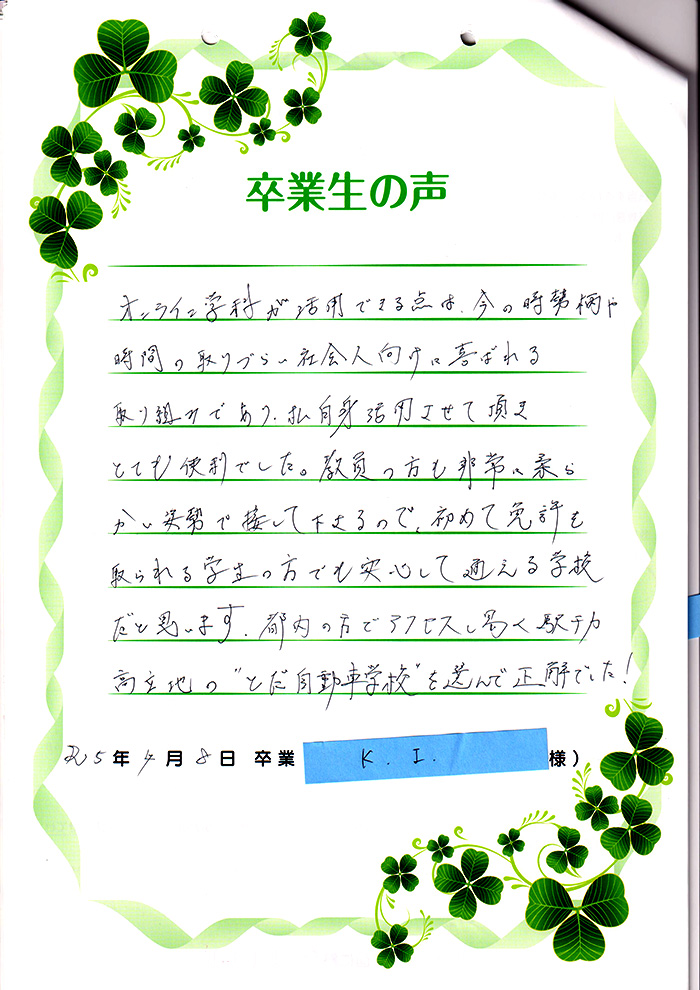 卒業生の声
オンライン学科が活用できる点は、今の時勢柄や
時間の取りづらい社会人向けに喜ばれる
取り組みであり、私自身活用させて頂き
とても便利でした。教員の方も非常に柔ら
かい姿勢で接して下さるので、初めて免許を
取られる学生の方でも安心して通える学校
だと思います。都内の方でアクセスし易く駅チカ
高立地の"とだ自動車学校"を選んで正解でした!
R5年4月8日 卒業 K. I. 様)